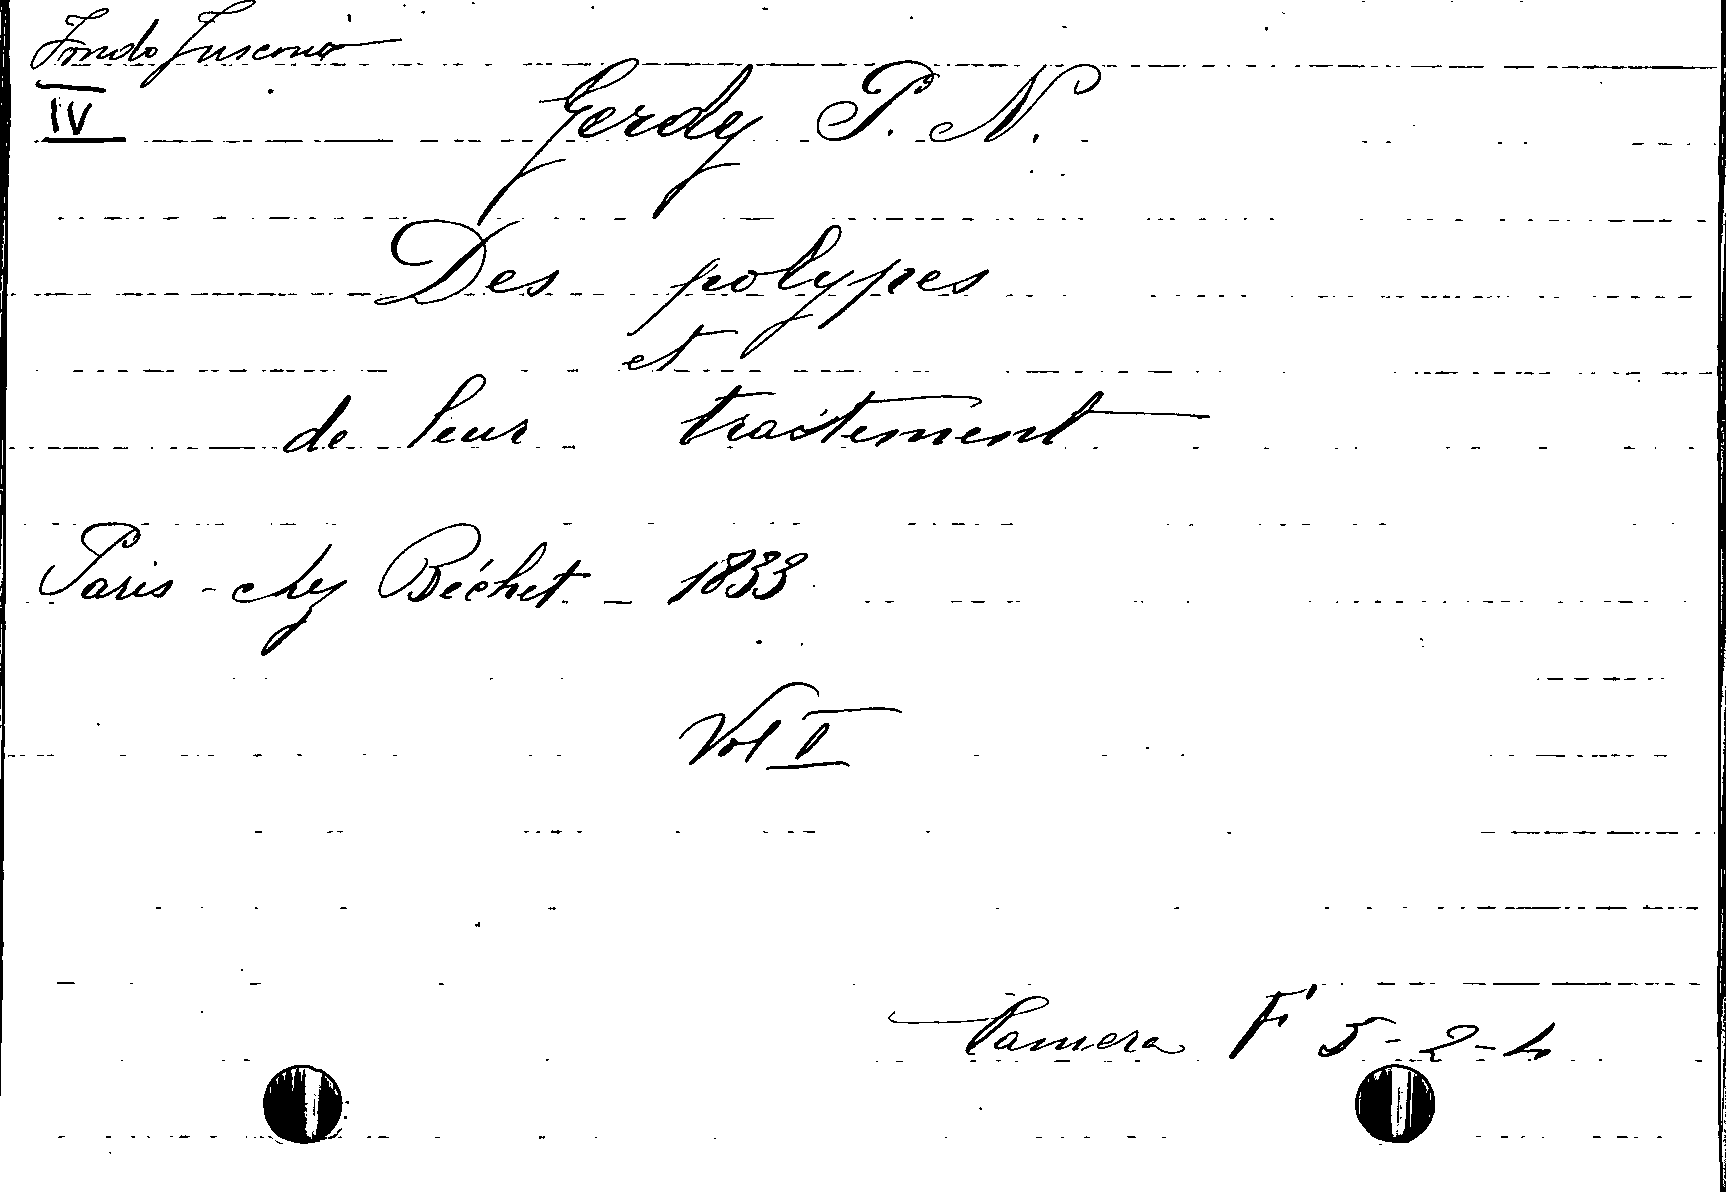 Fondo Fusconi
IV
Gerdy P. N.
Des polypes
et
de leur traitement
Paris - chez Béchet - 1833
Vol I
Camera F' 5-2-4